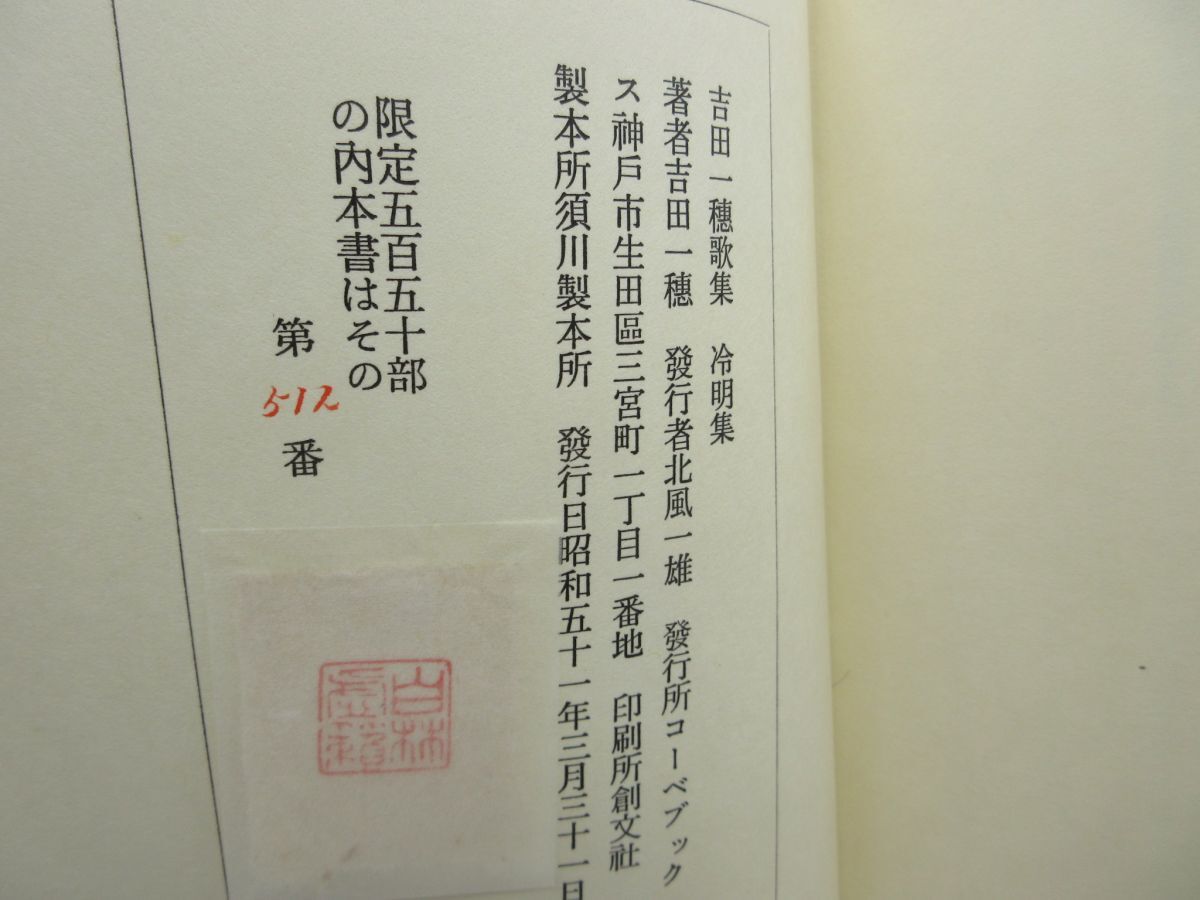 吉田一穗歌集　冷明集
著者吉田一穗　發行者北風一雄　發行所コーベブック
ス神戶市生田區三宮町一丁目一番地　印刷所創文社
製本所須川製本所　發行日昭和五十一年三月三十一日
限定五百五十部
の內本書はその
第
512
番